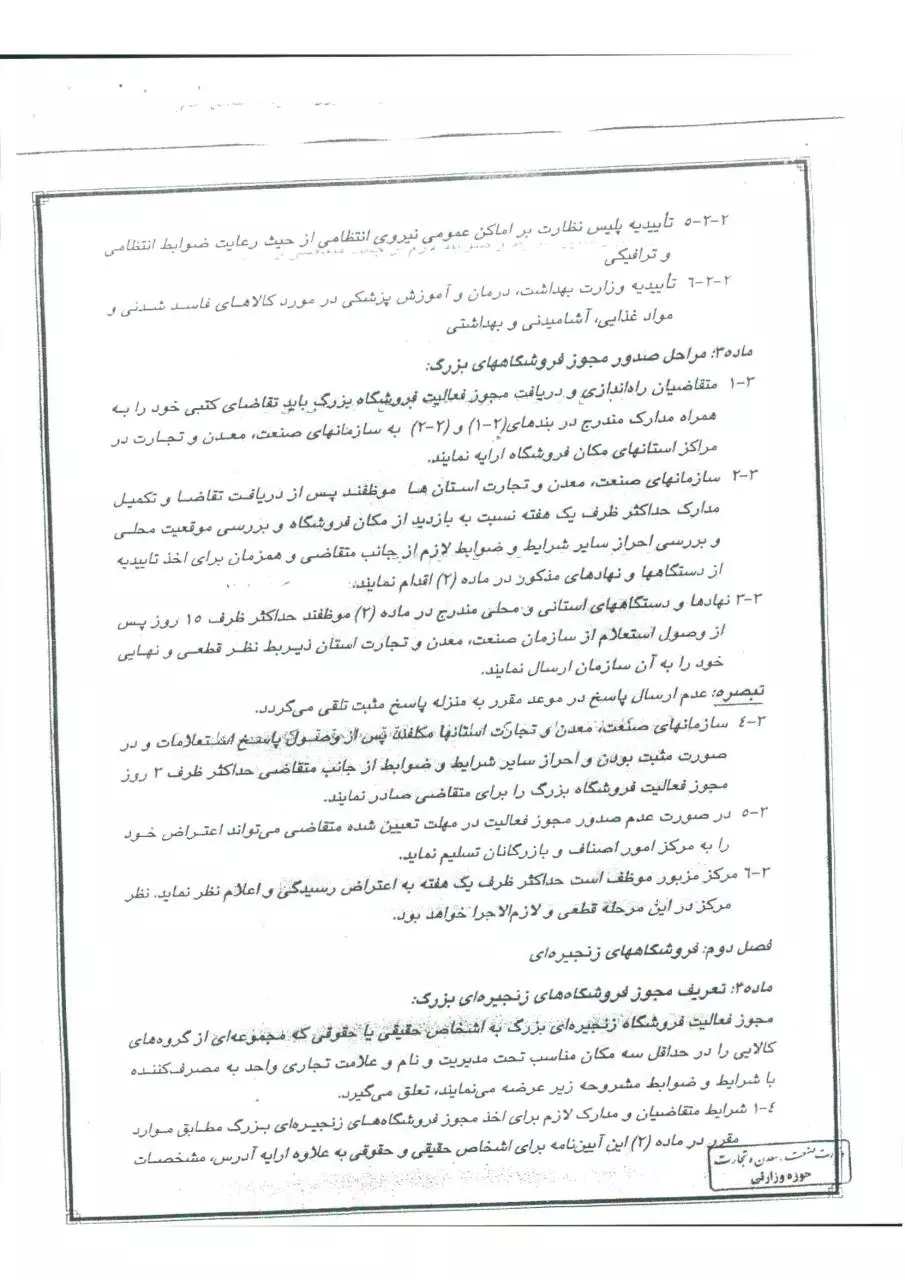 ۵-۲-۲ تأییدیه پلیس نظارت بر اماکن عمومی نیروی انتظامی از حیث رعایت ضوابط انتظامی
و ترافیکی
۶-۲-۲ تأییدیه وزارت بهداشت، درمان و آموزش پزشکی در مورد کالاهای فاسد شدنی و
مواد غذایی، آشامیدنی و بهداشتی
ماده۳: مراحل صدور مجوز فروشگاههای بزرگ:
۱-۳ متقاضیان راه‌اندازی و دریافت مجوز فعالیت فروشگاه بزرگ باید تقاضای کتبی خود را به
همراه مدارک مندرج در بندهای(۲-۱) و (۲-۲) به سازمانهای صنعت، معدن و تجارت در
مراکز استانهای مکان فروشگاه ارایه نمایند.
۲-۳ سازمانهای صنعت، معدن و تجارت استان ها موظفند پس از دریافت تقاضا و تکمیل
مدارک حداکثر ظرف یک هفته نسبت به بازدید از مکان فروشگاه و بررسی موقعیت محلی
و بررسی احراز سایر شرایط و ضوابط لازم از جانب متقاضی و همزمان برای اخذ تاییدیه
از دستگاهها و نهادهای مذکور در ماده (۲) اقدام نمایند.
۳-۳ نهادها و دستگاههای استانی و محلی مندرج در ماده (۲) موظفند حداکثر ظرف ۱۵ روز پس
از وصول استعلام از سازمان صنعت، معدن و تجارت استان ذیربط نظر قطعی و نهایی
خود را به آن سازمان ارسال نمایند.
تبصره: عدم ارسال پاسخ در موعد مقرر به منزله پاسخ مثبت تلقی می‌گردد.
۴-۳ سازمانهای صنعت، معدن و تجارت استانها مکلفند پس از وصول پاسخ استعلامات و در
صورت مثبت بودن و احراز سایر شرایط و ضوابط از جانب متقاضی حداکثر ظرف ۳ روز
مجوز فعالیت فروشگاه بزرگ را برای متقاضی صادر نمایند.
۵-۳ در صورت عدم صدور مجوز فعالیت در مهلت تعیین شده متقاضی می‌تواند اعتراض خود
را به مرکز امور اصناف و بازرگانان تسلیم نماید.
۶-۳ مرکز مزبور موظف است حداکثر ظرف یک هفته به اعتراض رسیدگی و اعلام نظر نماید. نظر
مرکز در این مرحله قطعی و لازم‌الاجرا خواهد بود.
فصل دوم: فروشگاههای زنجیره‌ای
ماده۴: تعریف مجوز فروشگاه‌های زنجیره‌ای بزرگ:
مجوز فعالیت فروشگاه زنجیره‌ای بزرگ به اشخاص حقیقی یا حقوقی که مجموعه‌ای از گروه‌های
کالایی را در حداقل سه مکان مناسب تحت مدیریت و نام و علامت تجاری واحد به مصرف‌کننده
با شرایط و ضوابط مشروحه زیر عرضه می‌نمایند، تعلق می‌گیرد.
۱-۴ شرایط متقاضیان و مدارک لازم برای اخذ مجوز فروشگاه‌های زنجیره‌ای بزرگ مطابق موارد
مقرر در ماده (۲) این آیین‌نامه برای اشخاص حقیقی و حقوقی به علاوه ارایه آدرس، مشخصات
وزارت صنعت، معدن و تجارت
حوزه وزارتی